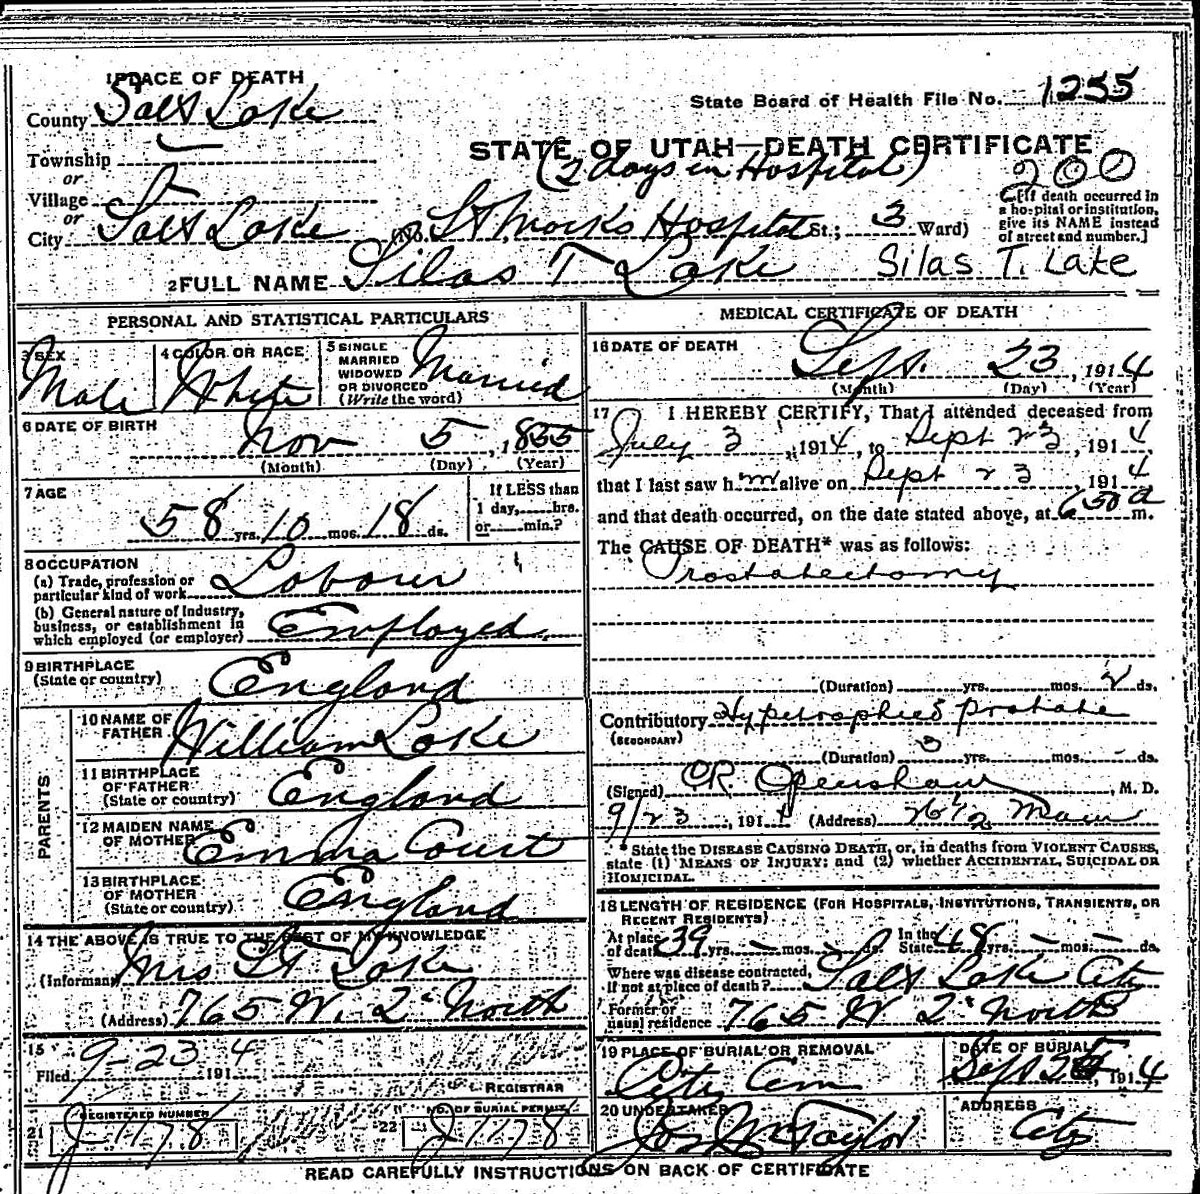 1 PLACE OF DEATH
County Salt Lake
State Board of Health File No. 1255
Township
STATE OF UTAH—DEATH CERTIFICATE
or
Village
(2 days in Hospital)
200
or
City Salt Lake (No. St Marks Hospital St.; 3 Ward)
[If death occurred in
a hospital or institution,
give its NAME instead
of street and number.]
2 FULL NAME Silas T Lake Silas T. Lake
PERSONAL AND STATISTICAL PARTICULARS
3 SEX
Male
4 COLOR OR RACE
White
5 SINGLE
MARRIED
WIDOWED
OR DIVORCED
(Write the word)
Married
6 DATE OF BIRTH
Nov 5, 1855
(Month) (Day) (Year)
7 AGE
58 yrs. 10 mos. 18 ds.
If LESS than
1 day,......hrs.
or......min.?
8 OCCUPATION
(a) Trade, profession or
particular kind of work Labour
(b) General nature of Industry,
business, or establishment in
which employed (or employer) Employed
9 BIRTHPLACE
(State or country) England
PARENTS
10 NAME OF
FATHER William Lake
11 BIRTHPLACE
OF FATHER
(State or country) England
12 MAIDEN NAME
OF MOTHER Emma Court
13 BIRTHPLACE
OF MOTHER
(State or country) England
14 THE ABOVE IS TRUE TO THE BEST OF MY KNOWLEDGE
(Informant) Mrs S T Lake
(Address) 765 W. 2d North
15
Filed 9-23 1914
REGISTRAR
REGISTERED NUMBER
21 J-1178
NO. OF BURIAL PERMIT
22 J1178
MEDICAL CERTIFICATE OF DEATH
16 DATE OF DEATH
Sept. 23, 1914
(Month) (Day) (Year)
17 I HEREBY CERTIFY, That I attended deceased from
July 3, 1914, to Sept 23, 1914
that I last saw h im alive on Sept 23, 1914
and that death occurred, on the date stated above, at 6 50 a m.
The CAUSE OF DEATH* was as follows:
Prostatectomy
(Duration) yrs. mos. 2 ds.
Contributory Hypetrophied prostate
(SECONDARY)
(Duration) 3 yrs. mos. ds.
(Signed) CR. Openshaw, M. D.
9/23, 1914 (Address) Main
* State the DISEASE CAUSING DEATH, or, in deaths from VIOLENT CAUSES,
state (1) MEANS OF INJURY; and (2) whether ACCIDENTAL, SUICIDAL OR
HOMICIDAL.
18 LENGTH OF RESIDENCE (FOR HOSPITALS, INSTITUTIONS, TRANSIENTS, OR
RECENT RESIDENTS)
At place
of death 39 yrs. – mos. – ds. In the
State 48 yrs. – mos. – ds.
Where was disease contracted,
if not at place of death? Salt Lake City
Former or
usual residence 765 W 2d North
19 PLACE OF BURIAL OR REMOVAL
City Cem
DATE OF BURIAL
Sept 25, 1914
20 UNDERTAKER
Jos Wm Taylor
ADDRESS
City
READ CAREFULLY INSTRUCTIONS ON BACK OF CERTIFICATE